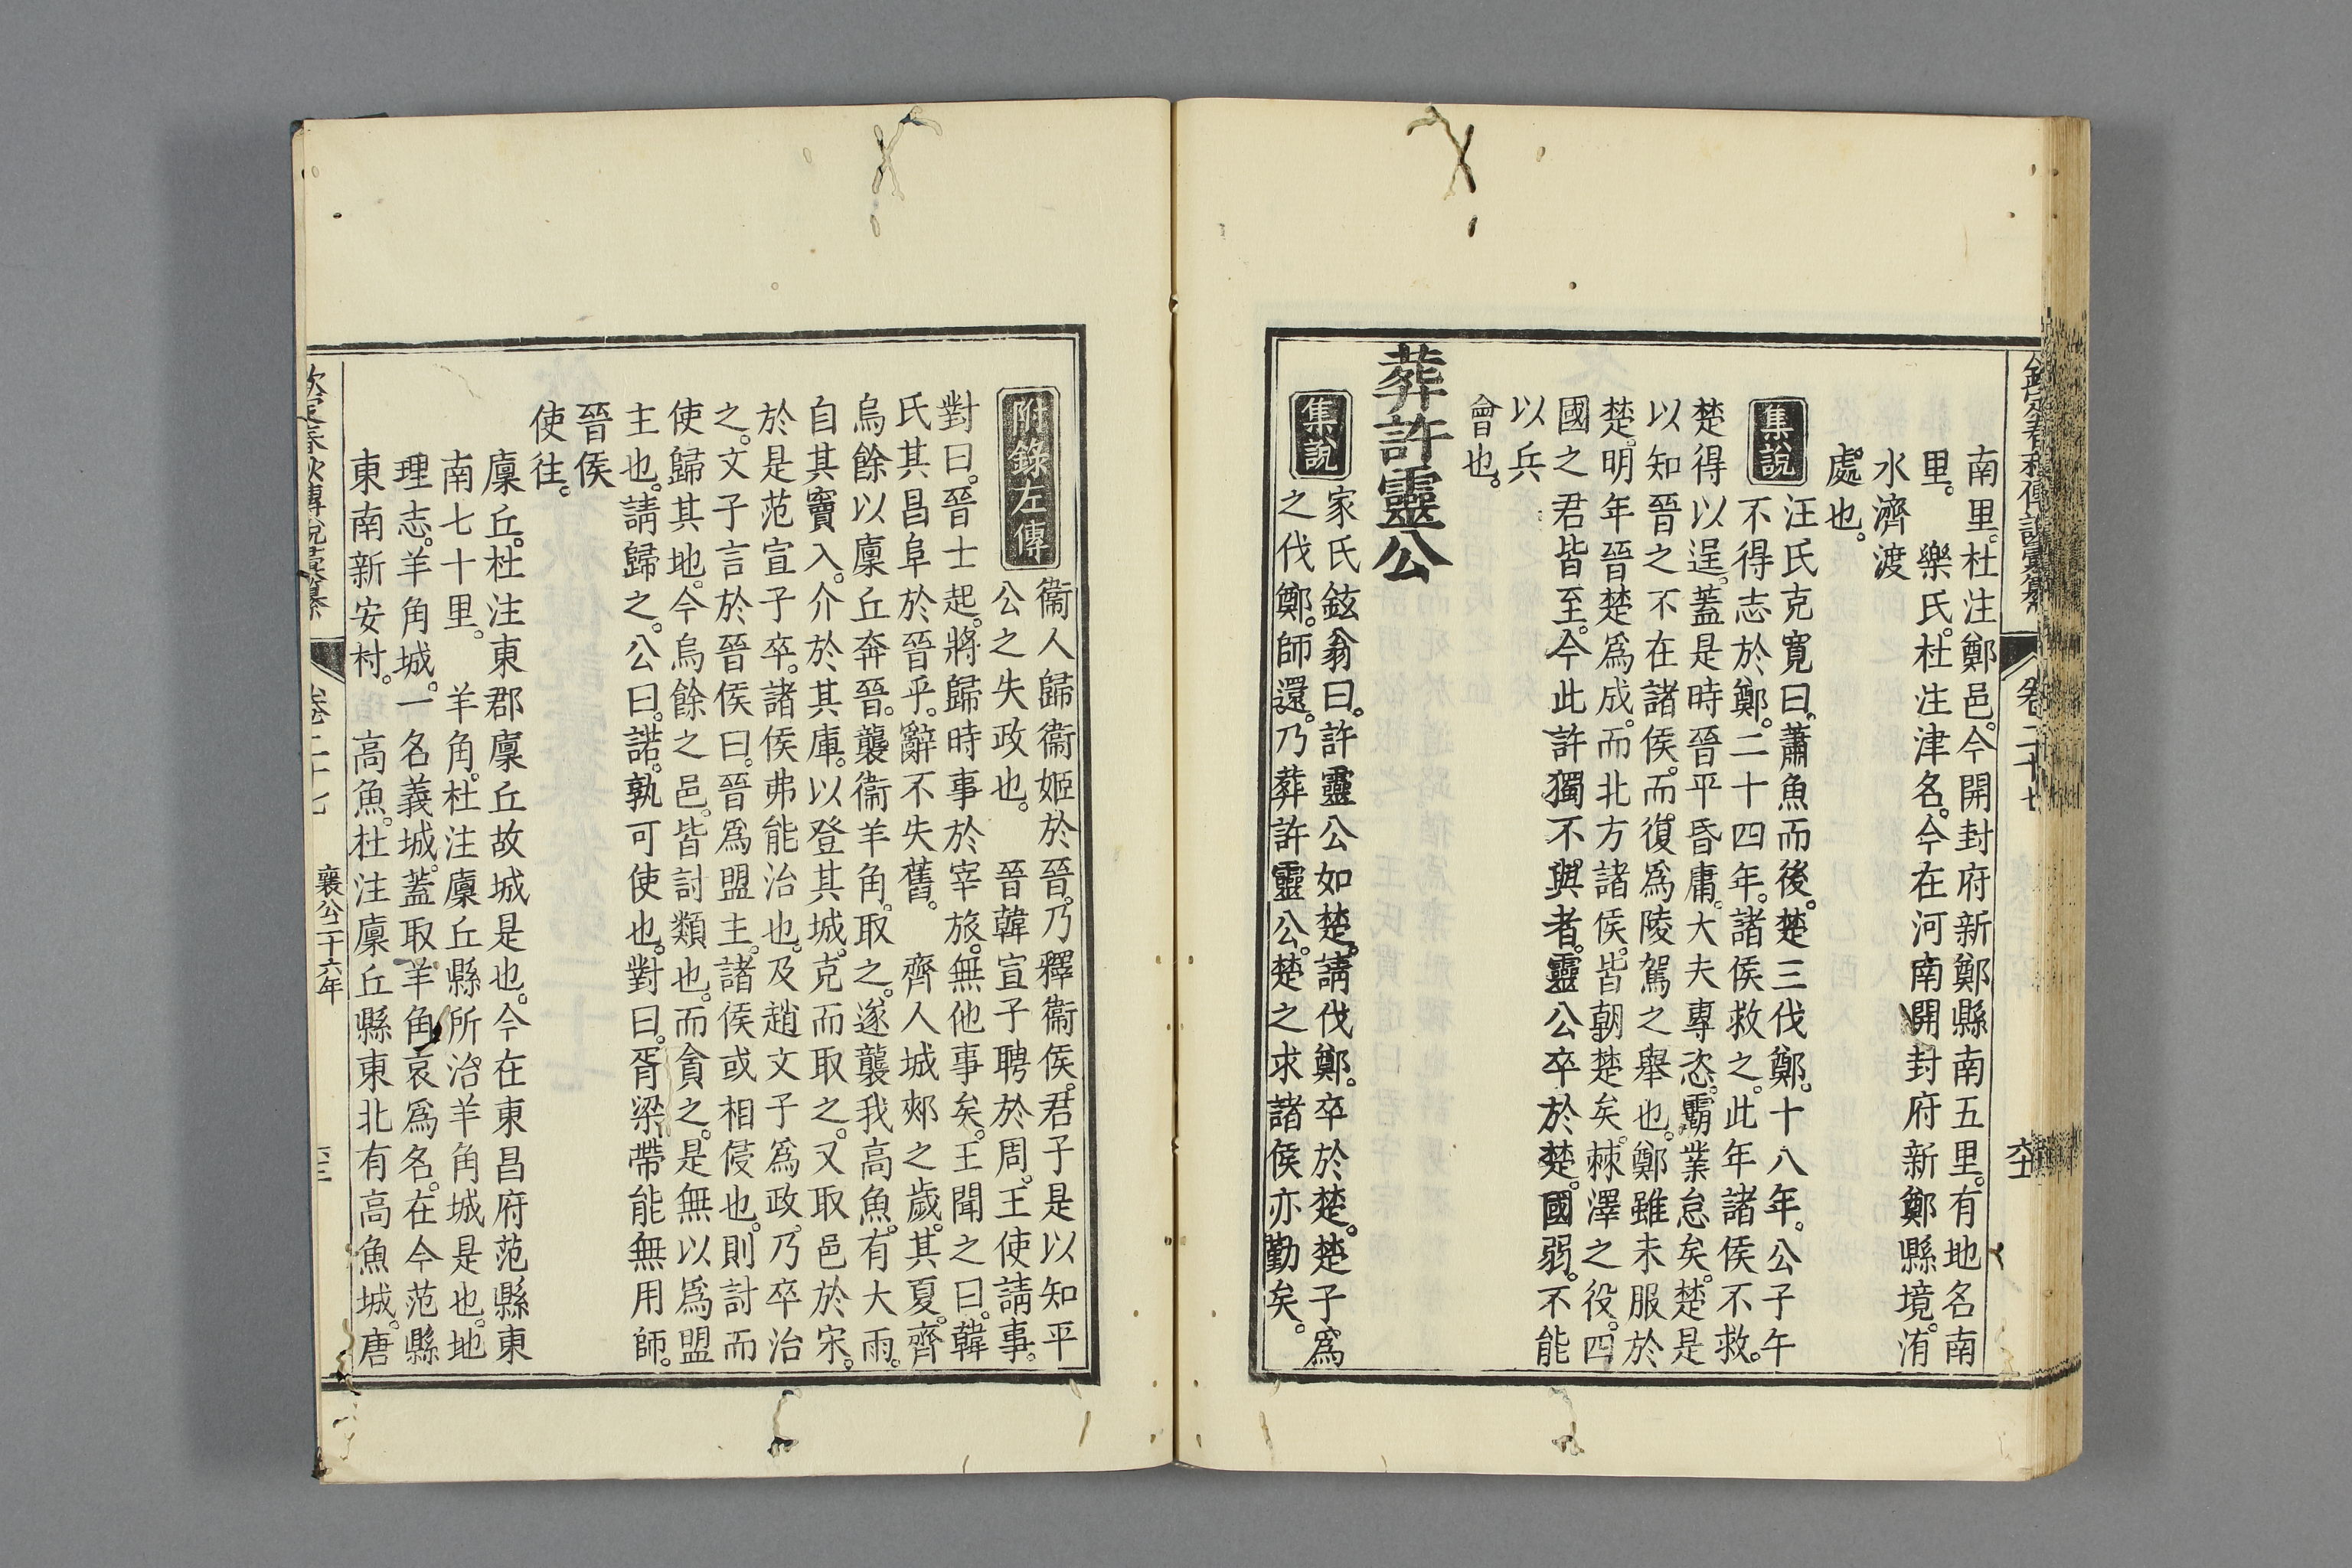 欽定春秋傳說彙纂 卷二十七
南里。杜注鄭邑。今開封府新鄭縣南五里。有地名南
里。 樂氏。杜注津名。今在河南開封府新鄭縣境。洧
水濟渡
處也。
集說
汪氏克寬曰。蕭魚而後。楚三伐鄭。十八年。公子午
不得志於鄭。二十四年。諸侯救之。此年諸侯不救。
楚得以逞。蓋是時晉平昏庸。大夫專恣。霸業怠矣。楚是
以知晉之不在諸侯。而復爲陵駕之舉也。鄭雖未服於
楚。明年晉楚爲成。而北方諸侯。皆朝楚矣。棘澤之役。四
國之君皆至。今此許獨不與者。靈公卒於楚。國弱。不能
以兵
會也。
葬許靈公
集說
家氏鉉翁曰。許靈公如楚。請伐鄭。卒於楚。楚子爲
之伐鄭。師還。乃葬許靈公。楚之求諸侯亦勤矣。
附錄左傳
衞人歸衞姬於晉。乃釋衞侯。君子是以知平
公之失政也。 晉韓宣子聘於周。王使請事。
對曰。晉士起。將歸時事於宰旅。無他事矣。王聞之曰。韓
氏其昌阜於晉乎。辭不失舊。 齊人城郟之歲。其夏。齊
烏餘以廩丘奔晉。襲衞羊角。取之。遂襲我高魚。有大雨。
自其竇入。介於其庫。以登其城。克而取之。又取邑於宋。
於是范宣子卒。諸侯弗能治也。及趙文子爲政。乃卒治
之。文子言於晉侯曰。晉爲盟主。諸侯或相侵也。則討而
使歸其地。今烏餘之邑。皆討類也。而貪之。是無以爲盟
主也。請歸之。公曰。諾。孰可使也。對曰。胥梁帶能無用師。
晉侯
使往。
廩丘。杜注東郡廩丘故城是也。今在東昌府范縣東
南七十里。 羊角。杜注廩丘縣所治羊角城是也。地
理志。羊角城。一名義城。蓋取羊角哀爲名。在今范縣
東南新安村。 高魚。杜注廩丘縣東北有高魚城。唐
欽定春秋傳說彙纂 卷二十七 襄公二十六年